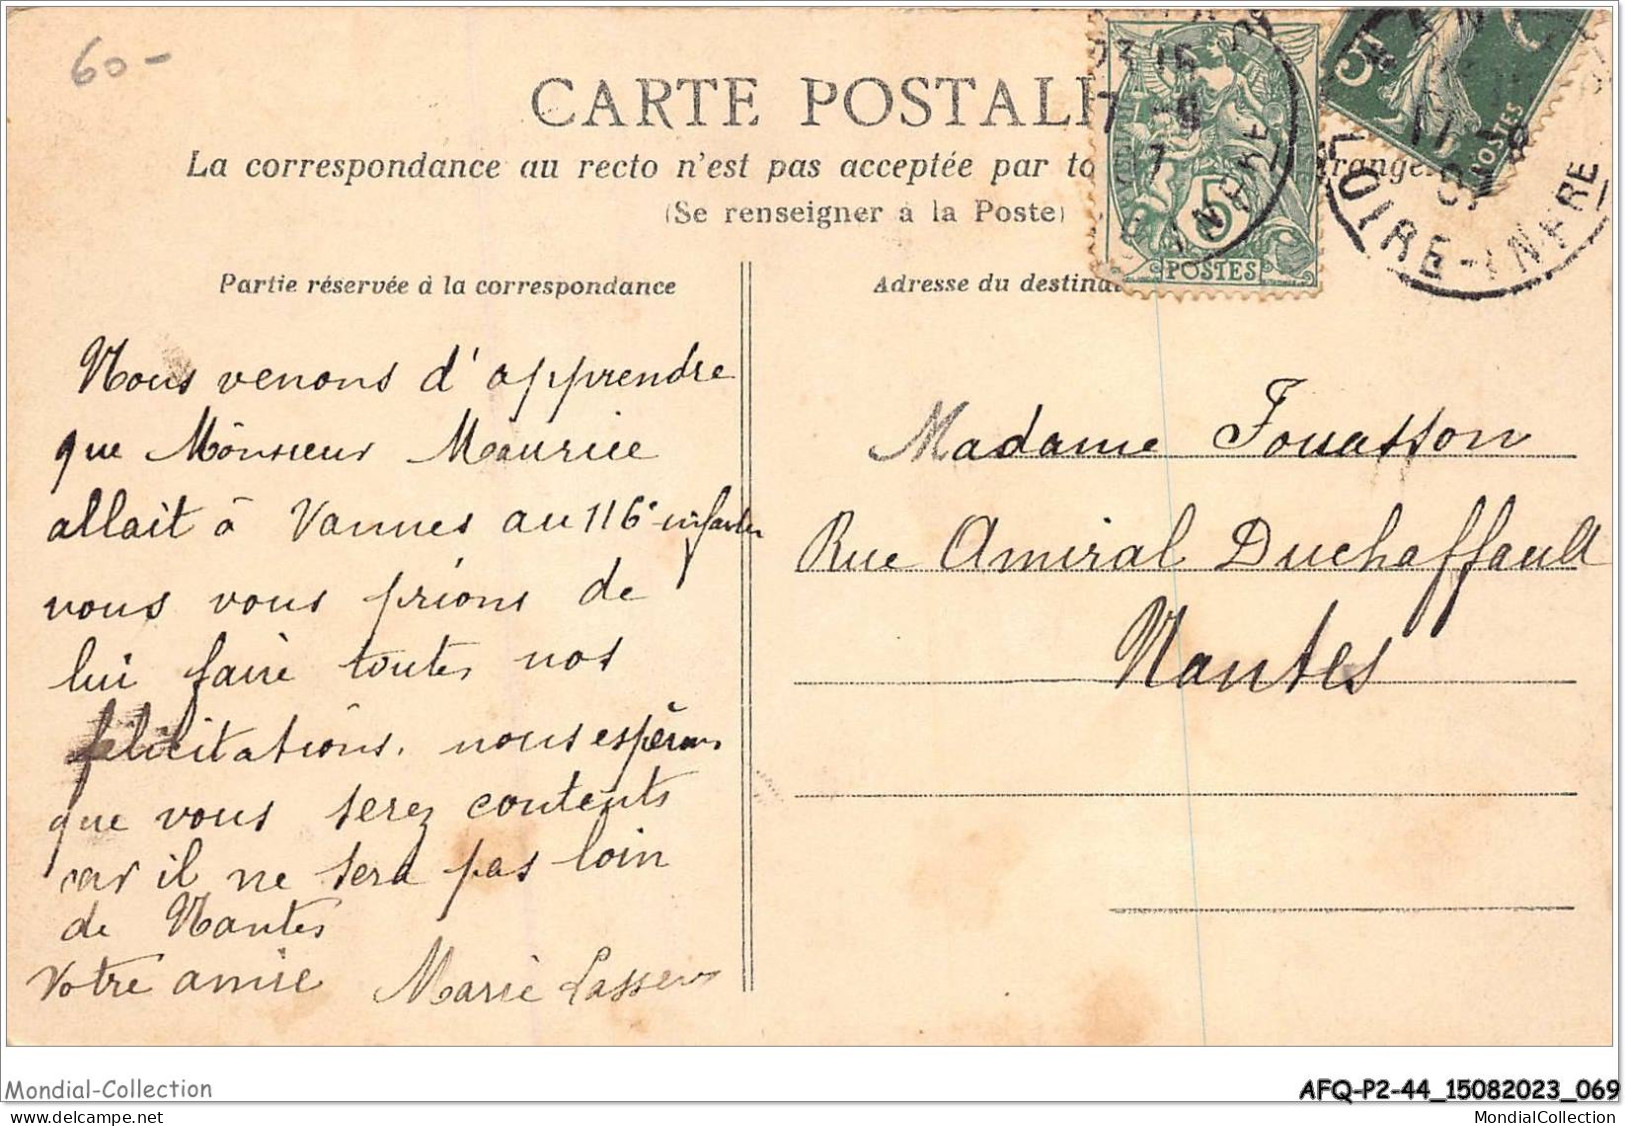 60-
CARTE POSTALE
La correspondance au recto n'est pas acceptée par to
(Se renseigner à la Poste)
POSTES
5
LOIRE-INFRE
Partie réservée à la correspondance
Adresse du destinat
Nous venons d'apprendre
que Monsieur Maurice
allait à Vannes au 116e infanter
nous vous prions de
lui faire toutes nos
félicitations. nous espérons
que vous serez contents
car il ne sera pas loin
de Nantes
Votre amie Marie
Madame Fouasson
Rue Amiral Duchaffault
Nantes
Mondial-Collection
AFQ-P2-44_15082023_069
www.delcampe.net/fr/collections/store/MondialCollection
MondialCollection